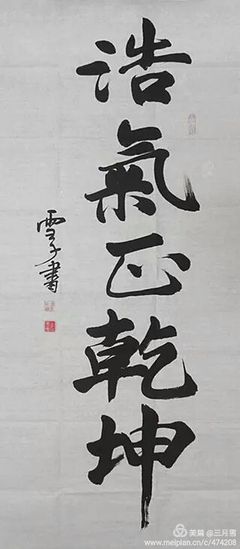 浩氣正乾坤
雪子書
美篇 @三月雪
www.meipian.cn/c/474208